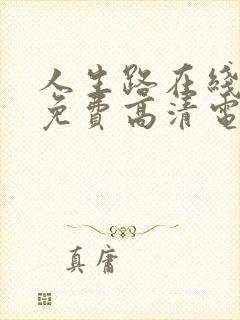 人生路在线
免费高清电
真庸